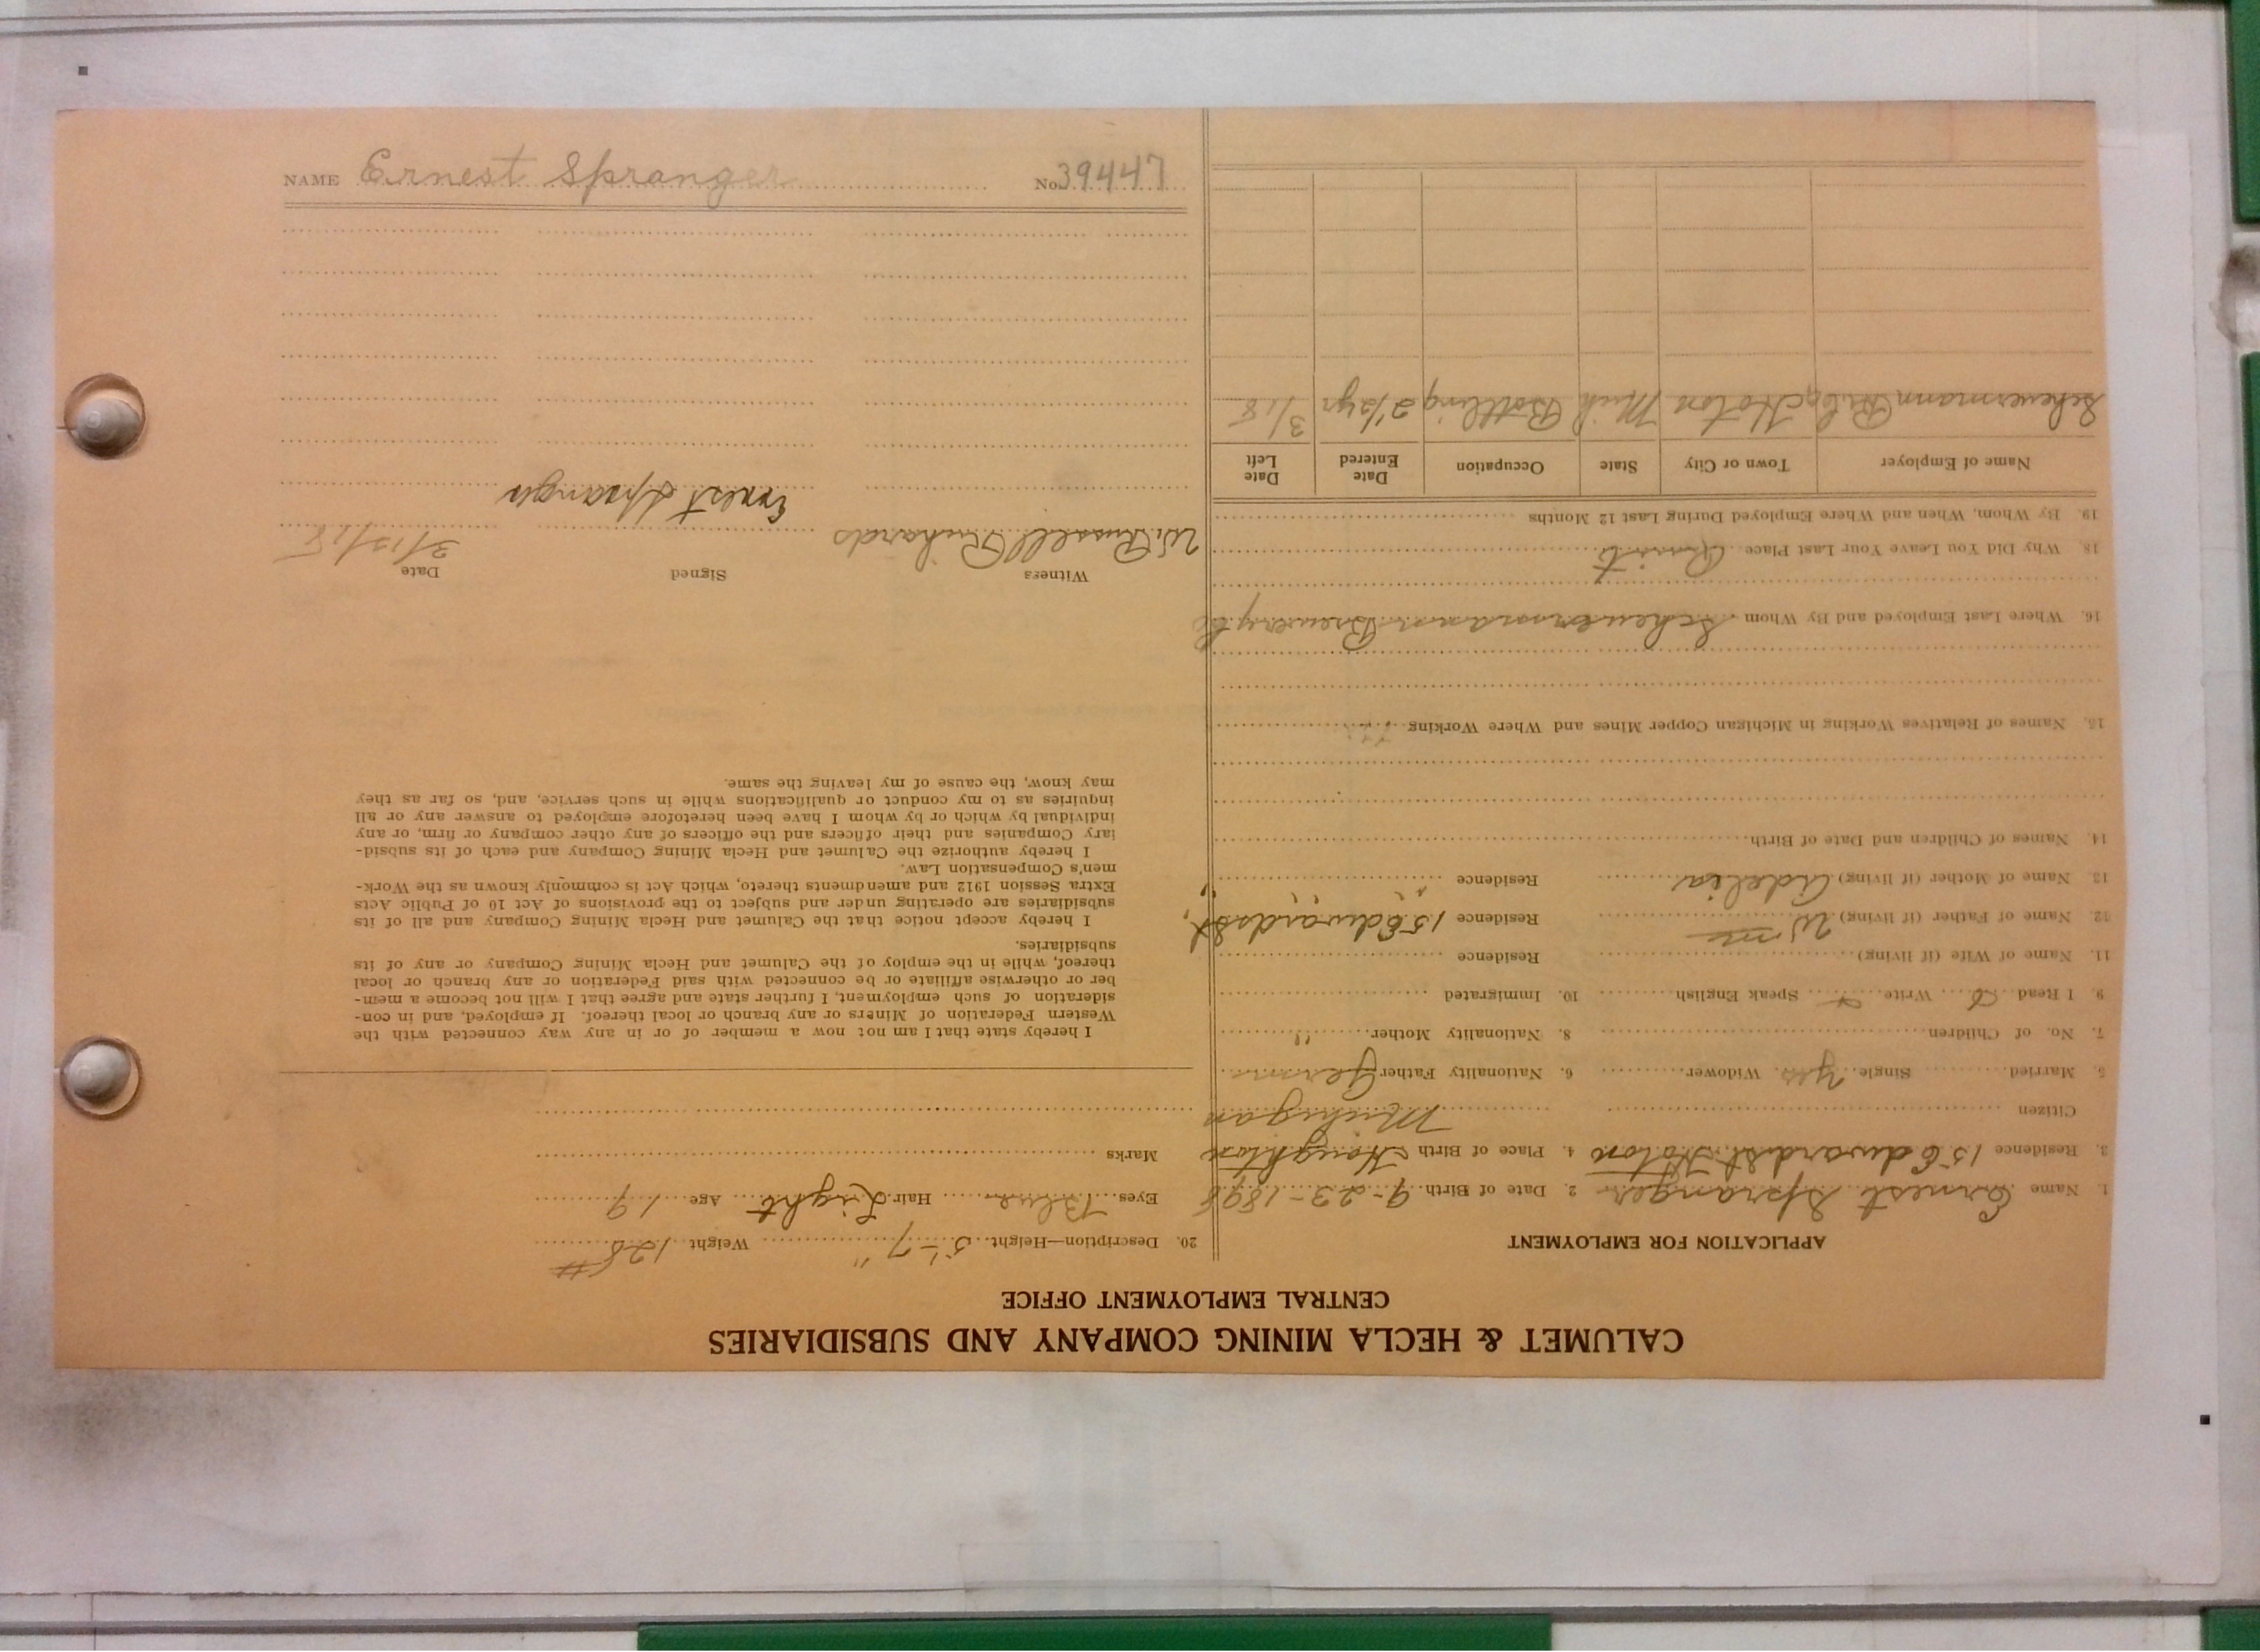 NAME Ernest Spranger No. 39447
CALUMET & HECLA MINING COMPANY AND SUBSIDIARIES
CENTRAL EMPLOYMENT OFFICE
APPLICATION FOR EMPLOYMENT
1. Name Ernest Spranger 2. Date of Birth 9-23-1898
3. Residence 15 Edward St. Hoton 4. Place of Birth Houghton
Citizen Michigan
5. Married Single Yes Widower 6. Nationality Father German
7. No. of Children 8. Nationality Mother "
9. I Read Write Speak English 10. Immigrated
11. Name of Wife (if living) Residence
12. Name of Father (if living) Wm Residence 15 Edwards St.
13. Name of Mother (if living) Adelia Residence " " "
14. Names of Children and Date of Birth
15. Names of Relatives Working in Michigan Copper Mines and Where Working
16. Where Last Employed and By Whom Scheuermann Brewery Co
18. Why Did You Leave Your Last Place Quit
19. By Whom, When and Where Employed During Last 12 Months
Name of Employer Town or City State Occupation Date Entered Date Left
Scheuermann Hoton Mich Bottling 2 1/2 yr 3/18
20. Description—Height 5'-7" Weight 128 #
Eyes Blue Hair Light Age 19
Marks
I hereby state that I am not now a member of or in any way connected with the
Western Federation of Miners or any branch or local thereof. If employed, and in con-
sideration of such employment, I further state and agree that I will not become a mem-
ber or otherwise affiliate or be connected with said Federation or any branch or local
thereof, while in the employ of the Calumet and Hecla Mining Company or any of its
subsidiaries.
I hereby accept notice that the Calumet and Hecla Mining Company and all of its
subsidiaries are operating under and subject to the provisions of Act 10 of Public Acts
Extra Session 1912 and amendments thereto, which Act is commonly known as the Work-
men's Compensation Law.
I hereby authorize the Calumet and Hecla Mining Company and each of its subsid-
iary Companies and their officers and the officers of any other company or firm, or any
individual by which or by whom I have been heretofore employed to answer any or all
inquiries as to my conduct or qualifications while in such service, and, so far as they
may know, the cause of my leaving the same.
Witness Signed Date
W. Russell Richards Ernest Spranger 3/13/18